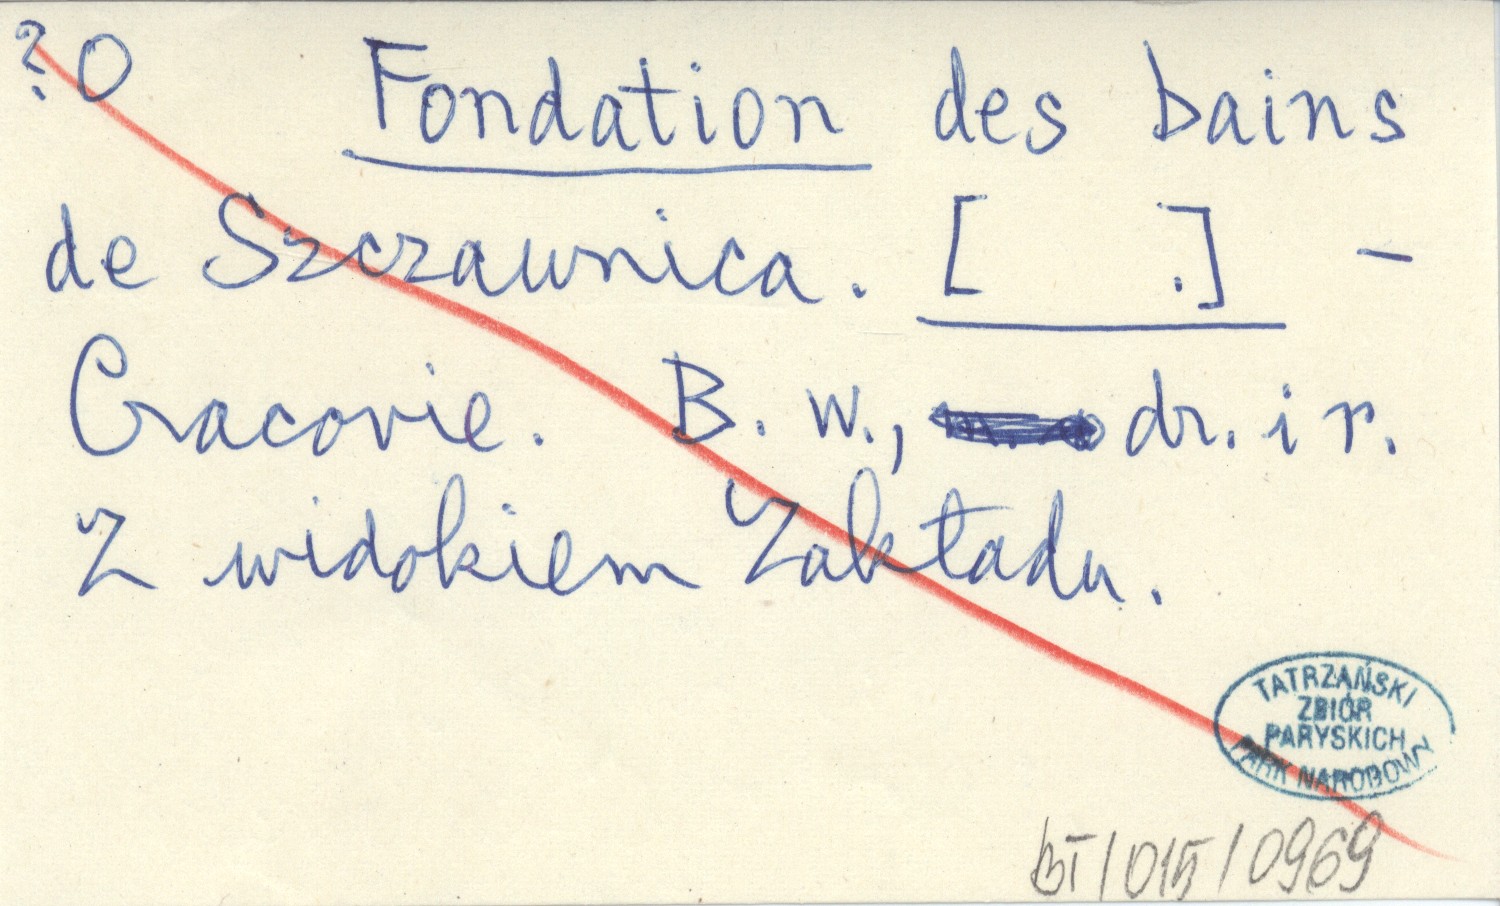 ? O Fondation des bains
de Szczawnica. [ .] -
Cracovie. B. w., dr. i r.
Z widokiem Zakładu.
TATRZAŃSKI
ZBIÓR
PARYSKICH
PARK NARODOWY
BT/015/0969